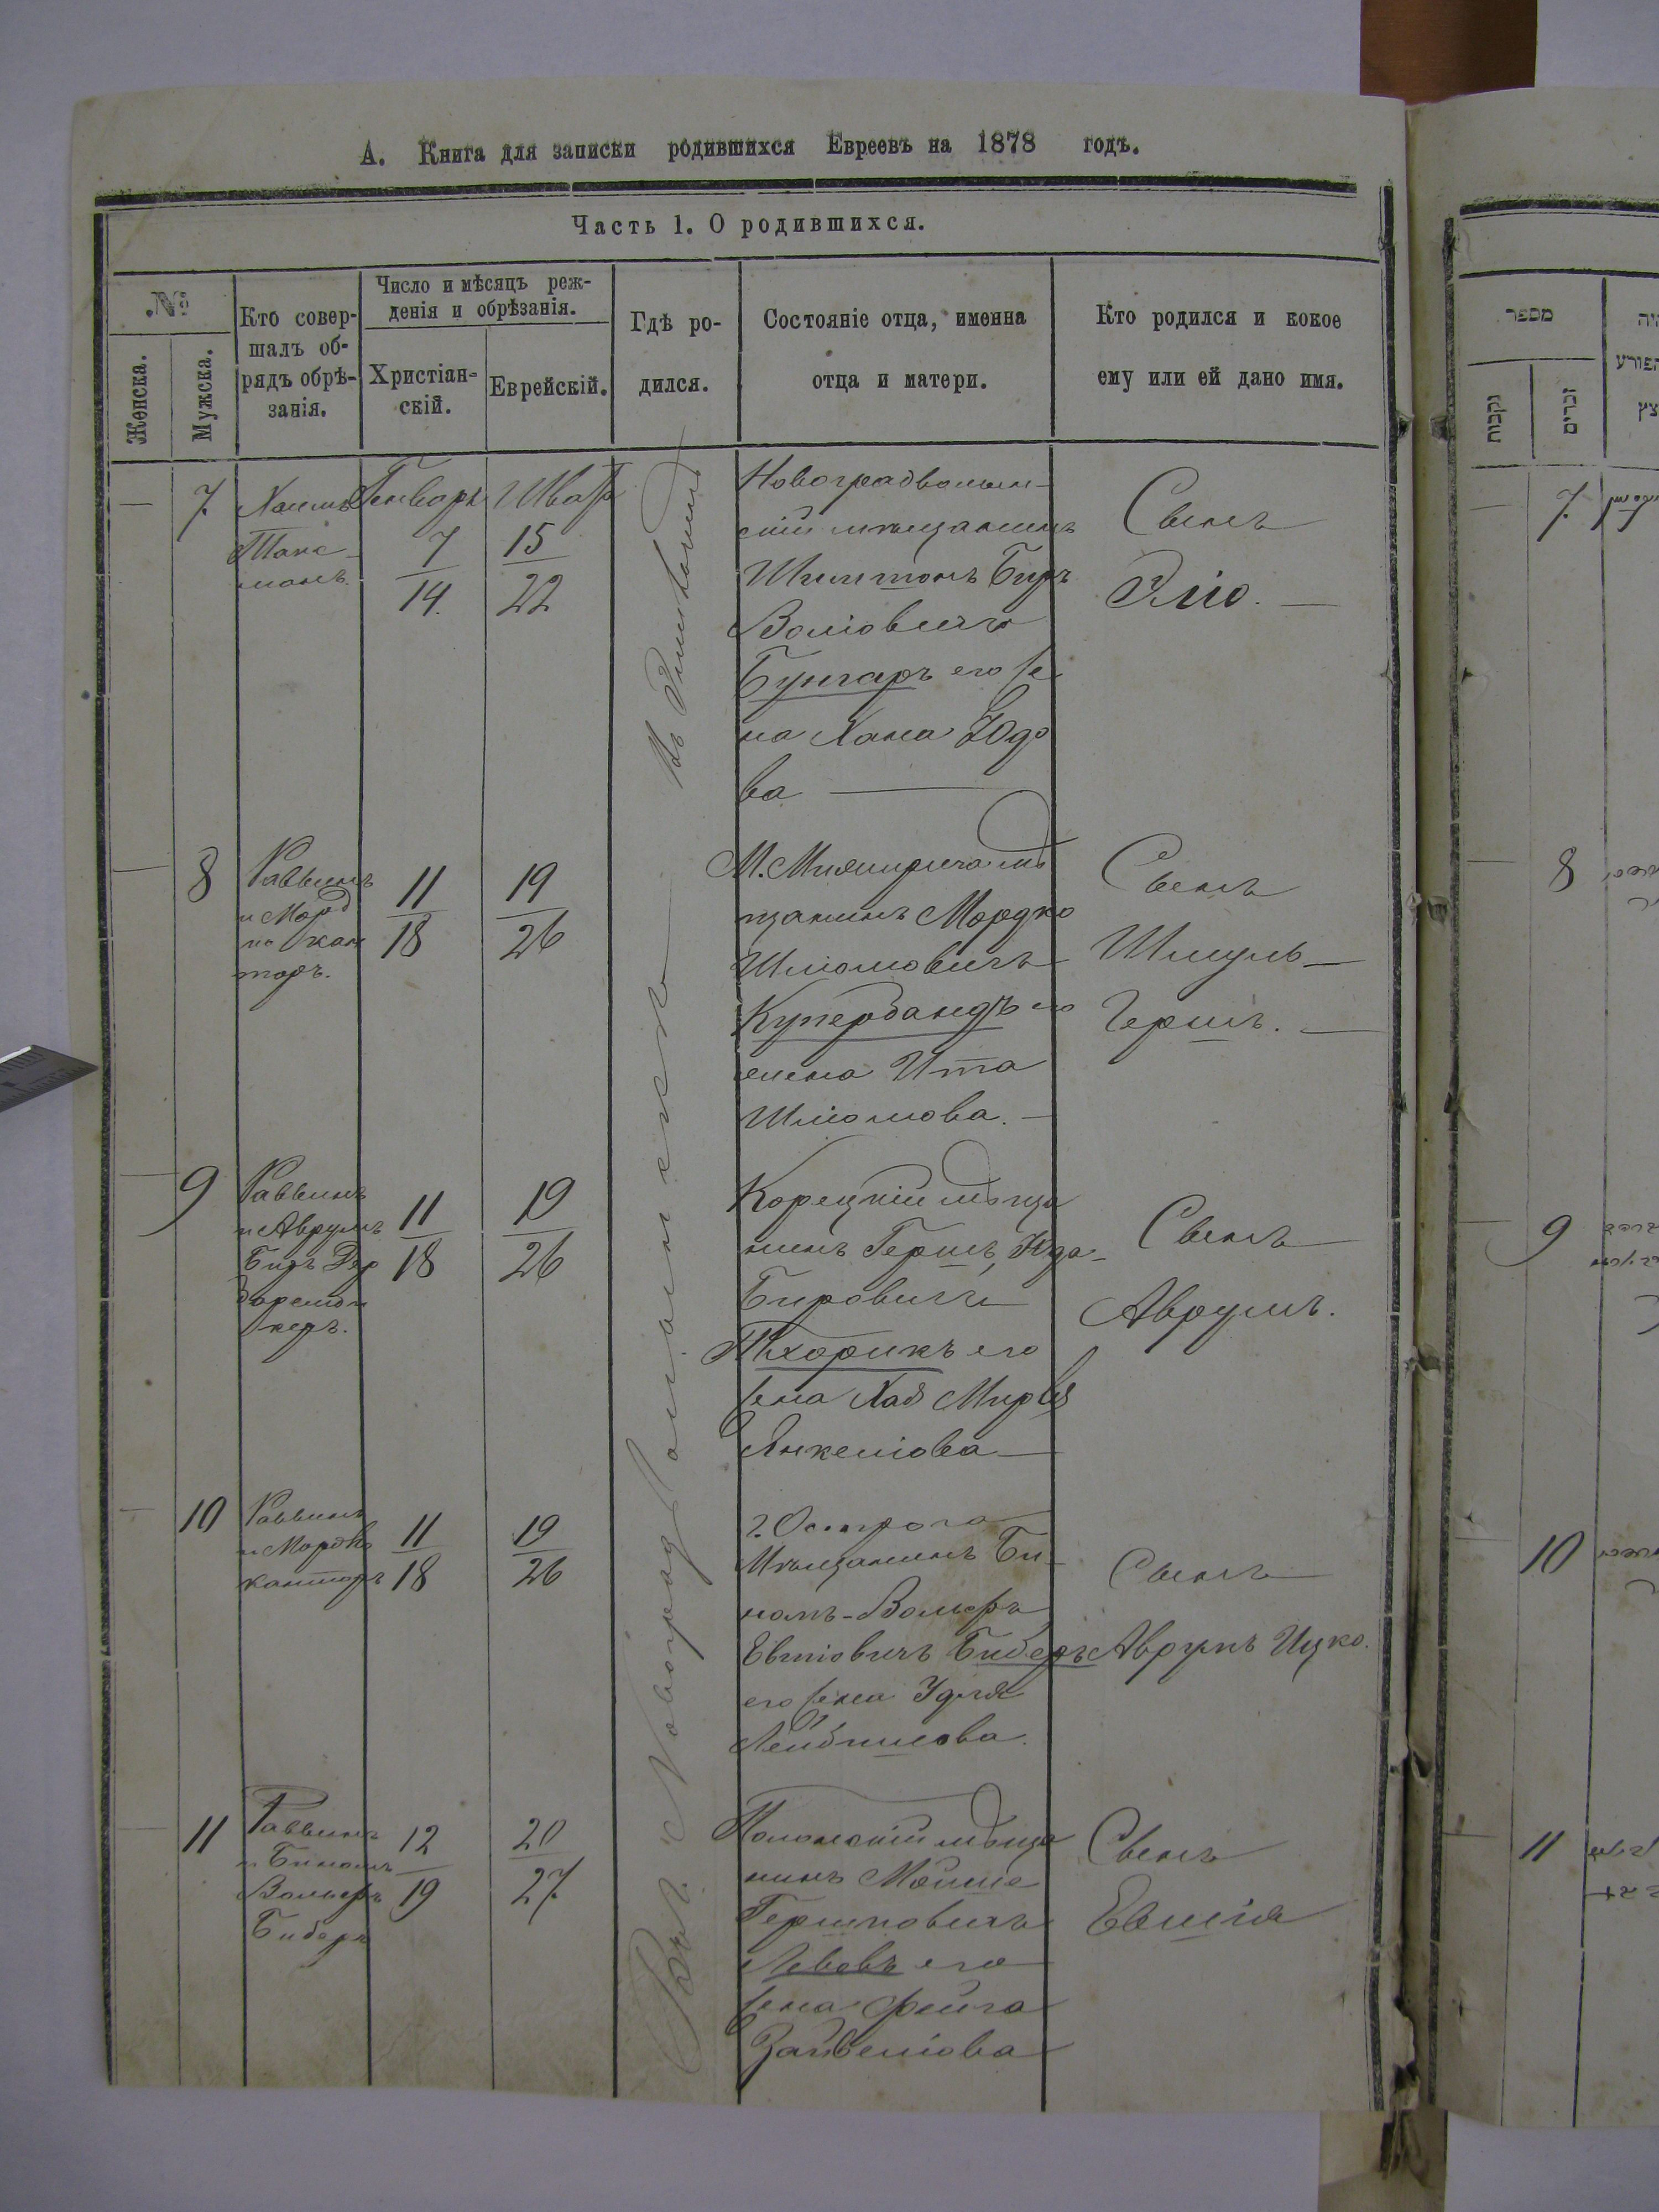 А. Книга для записки родившихся Евреевъ на 1878 годъ.
Часть 1. О родившихся.
№
Женска.
Мужска.
Кто совер-
шалъ об-
рядъ обрѣ-
занія.
Число и мѣсяцъ реж-
денія и обрѣзанія.
Христіан-
скій.
Еврейскій.
Гдѣ ро-
дился.
Состояніе отца, именна
отца и матери.
Кто родился и кокое
ему или ей дано имя.
7.
Хаимъ
Такс-
манъ.
Генваръ
7
14.
Шватъ
15
22
Новоградволын-
скій мѣщанинъ
Шлитонъ Беръ
Воліовичъ
Бунгаръ его же
на Хана Юдо
ва
Сынъ
Эліо.
8
Раввинъ
и Мордко
кан
торъ.
11
18
19
26
М. Миянирича мѣ
щанинъ Мордко
Шліомовичъ
Купербандъ его
жена Ита
Шліомова.
Сынъ
Шмуль
Гершъ.
9
Раввинъ
и Аврумъ
Беръ
11
18
19
26
Корецкій мѣща
нинъ Гершъ, Юда-
Беровичъ
Тхорикъ его
жена Хая Мирля
Янкеліова
Сынъ
Аврумъ.
10
Раввинъ
и Мордко
канторъ
11
18
19
26
г. Острога
Мѣщанинъ Би-
номъ-Вольфъ
Евшіовичъ Биберъ
его жена Удля
Лейбишова.
Сынъ
Аврумъ Ицко.
11
Раввинъ
и Биномъ
Вольфъ
Биберъ
12
19
20
27.
Полонскій мѣща
нинъ Мойше
Гершковичъ
Левовъ его
жена Фейга
Зайвеліова
Сынъ
Евшія
Въ г. Новоградволынскѣ
מספר
נקבות
זכרים
7.
8
9
10
11